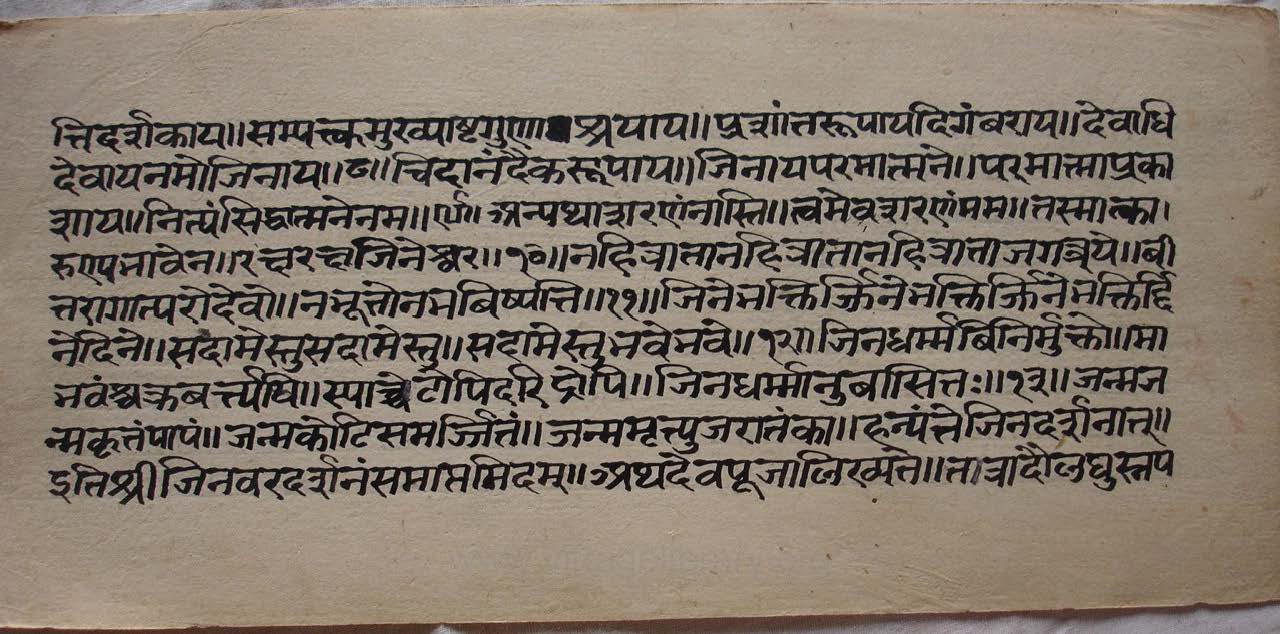 त्तिदर्शकाय॥सम्पत्त्कमुख्याष्टगुणाश्रयाय॥प्रशांतरूपायदिगंबराय॥देवाधि
देवायनमोजिनाय॥८॥चिदानंदैकरूपाय॥जिनायपरमात्मने॥परमात्माप्रका
शाय॥नित्यंसिद्धात्मनेनम॥९॥अन्यथाशरणंनास्ति॥त्वमेवशरणंमम॥तस्मात्का।
रुण्यभावेन॥रक्षरक्षजिनेश्वर॥१०॥नहित्रातानहित्रातानहित्राताजगत्रये॥बी
तरागात्परोदेवो॥नभूतोनभबिष्यति॥११॥जिनेभक्तिर्ज्जिनेभक्तिर्ज्जिनेभक्तिर्द्दि
नेदिने॥सदामेस्तुसदामेस्तु॥सदामेस्तुभवेभवे॥१२॥जिनधर्म्मबिनिर्मुक्तो॥मा
भवंश्चक्रबर्त्त्यपि॥स्याच्चेटोपिदरिद्रोपि॥जिनधर्म्मानुबासितः॥१३॥जन्मज
न्मकृतंपापं॥जन्मकोटिसमर्ज्जितं॥जन्ममृत्युजरातंका॥हन्यंतेजिनदर्शनात्॥
इतिश्रीजिनवरदर्शनंसमाप्तमिदम्॥अथदेवपूजालिख्यते॥तात्रादौलघुस्नप